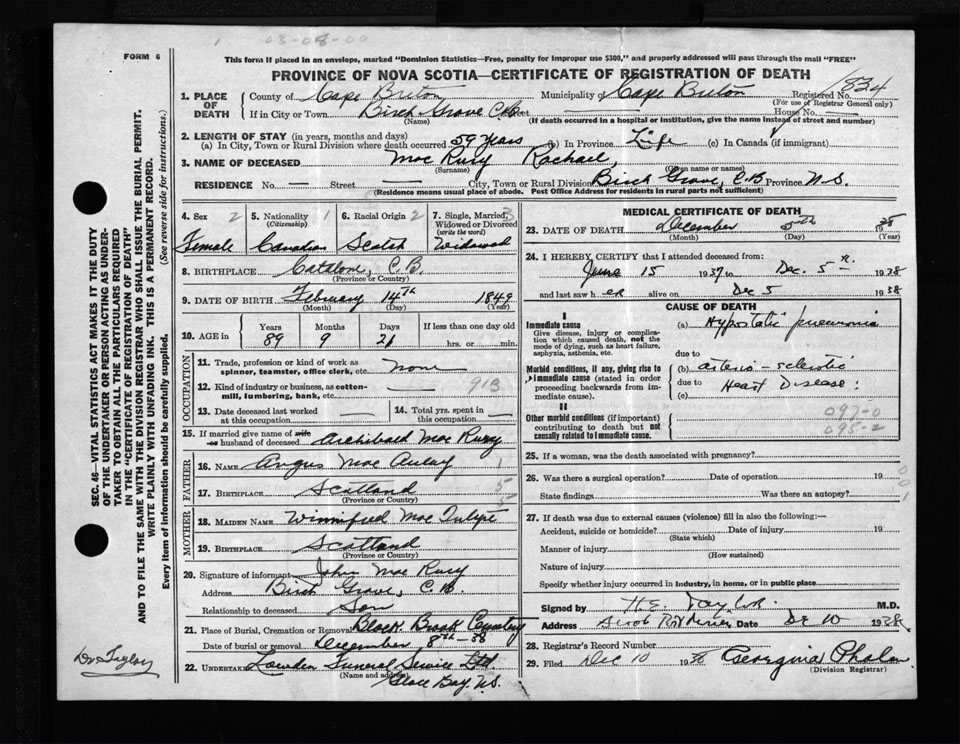 03-08-00
FORM 6
This form if placed in an envelope, marked "Dominion Statistics—Free, penalty for improper use $300," and properly addressed will pass through the mail "FREE"
PROVINCE OF NOVA SCOTIA—CERTIFICATE OF REGISTRATION OF DEATH
1. PLACE OF DEATH
County of Cape Breton Municipality of Cape Breton Registered No. 834
(For use of Registrar General only)
If in City or Town Birch Grove C.B. Street House No.
(Name) (If death occurred in a hospital or institution, give the name instead of street and number)
2. LENGTH OF STAY (in years, months and days)
(a) In City, Town or Rural Division where death occurred 59 years (b) In Province Life (c) In Canada (if immigrant)
3. NAME OF DECEASED Mac Rury Rachael,
(Surname) (Given name or names)
RESIDENCE No. — Street — City, Town or Rural Division Birch Grove, C.B Province N.S.
(Residence means usual place of abode. Post Office Address for residents in rural parts not sufficient)
4. Sex 2 5. Nationality 1 6. Racial Origin 2 7. Single, Married, 3
(Citizenship) Widowed or Divorced
(write the word)
Female Canadian Scotch Widowed
8. BIRTHPLACE Catalone, C.B.
(Province or Country)
9. DATE OF BIRTH February 14th 1849
(Month) (Day) (Year)
10. AGE in Years Months Days If less than one day old
89 9 21 hrs. or min.
OCCUPATION
11. Trade, profession or kind of work as spinner, teamster, office clerk, etc. none
12. Kind of industry or business, as cotton-mill, lumbering, bank, etc. 913
13. Date deceased last worked at this occupation
14. Total yrs. spent in this occupation
15. If married give name of wife or husband of deceased Archibald Mac Rury
FATHER
16. NAME Angus Mac Aulay 1
17. BIRTHPLACE Scotland 5
(Province or Country)
MOTHER
18. MAIDEN NAME Winnifred
19. BIRTHPLACE Scotland
(Province or Country)
20. Signature of informant John Mac Rury
Address Birch Grove, C.B.
Relationship to deceased Son
21. Place of Burial, Cremation or Removal Black Brook Cemetery
Date of burial or removal December 8th-38
22. UNDERTAKER Lowden Funeral Service Ltd.
(Name and address)
Glace Bay, N.S.
MEDICAL CERTIFICATE OF DEATH
23. DATE OF DEATH December 5th 38
(Month) (Day) (Year)
24. I HEREBY CERTIFY that I attended deceased from:
June 15 1937 to Dec. 5th 1938
and last saw her alive on Dec 5 1938
CAUSE OF DEATH
I
Immediate cause (a) Hypostatic pneumonia
Give disease, injury or complication which caused death, not the mode of dying, such as heart failure, asphyxia, asthenia, etc.
due to
Morbid conditions, if any, giving rise to immediate cause (stated in order proceeding backwards from immediate cause).
(b) arterio-sclerotic
due to Heart Disease:
(c)
II
Other morbid conditions (if important) contributing to death but not causally related to immediate cause.
097-0
095-2
25. If a woman, was the death associated with pregnancy?
26. Was there a surgical operation? Date of operation 19
State findings Was there an autopsy?
001
27. If death was due to external causes (violence) fill in also the following:—
Accident, suicide or homicide? Date of injury 19
(State which)
Manner of injury
(How sustained)
Nature of injury
Specify whether injury occurred in industry, in home, or in public place
Signed by H.E. Taylor M.D.
Address Date De 10 1938
28. Registrar's Record Number
29. Filed Dec 10 1938 Georgina Phalen
(Division Registrar)
SEC. 46—VITAL STATISTICS ACT MAKES IT THE DUTY
OF THE UNDERTAKER OR PERSON ACTING AS UNDER-
TAKER TO OBTAIN ALL THE PARTICULARS REQUIRED
IN THE "CERTIFICATE OF REGISTRATION OF DEATH"
AND TO FILE THE SAME WITH THE DIVISION REGISTRAR WHO SHALL ISSUE THE BURIAL PERMIT.
WRITE PLAINLY WITH UNFADING INK. THIS IS A PERMANENT RECORD.
Every item of information should be carefully supplied. (See reverse side for instructions.)
Dr Taylor